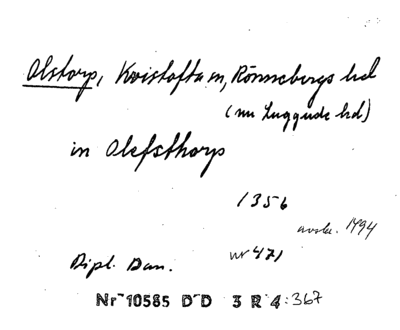 Olstorp, Kvistofta sn, Rönnebergs hd
(nu Luggude hd)
in Olefsthorp
1356
avskr. 1494
Dipl. Dan. nr 471
Nr 10585 D D 3 R 4:367